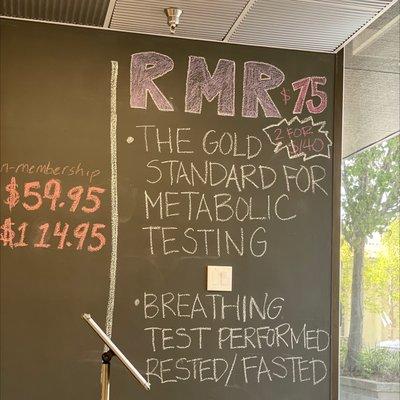 n-membership
$59.95
$114.95
RMR $75
2 FOR
$140
• THE GOLD
STANDARD FOR
METABOLIC
TESTING
• BREATHING
TEST PERFORMED
RESTED/FASTED